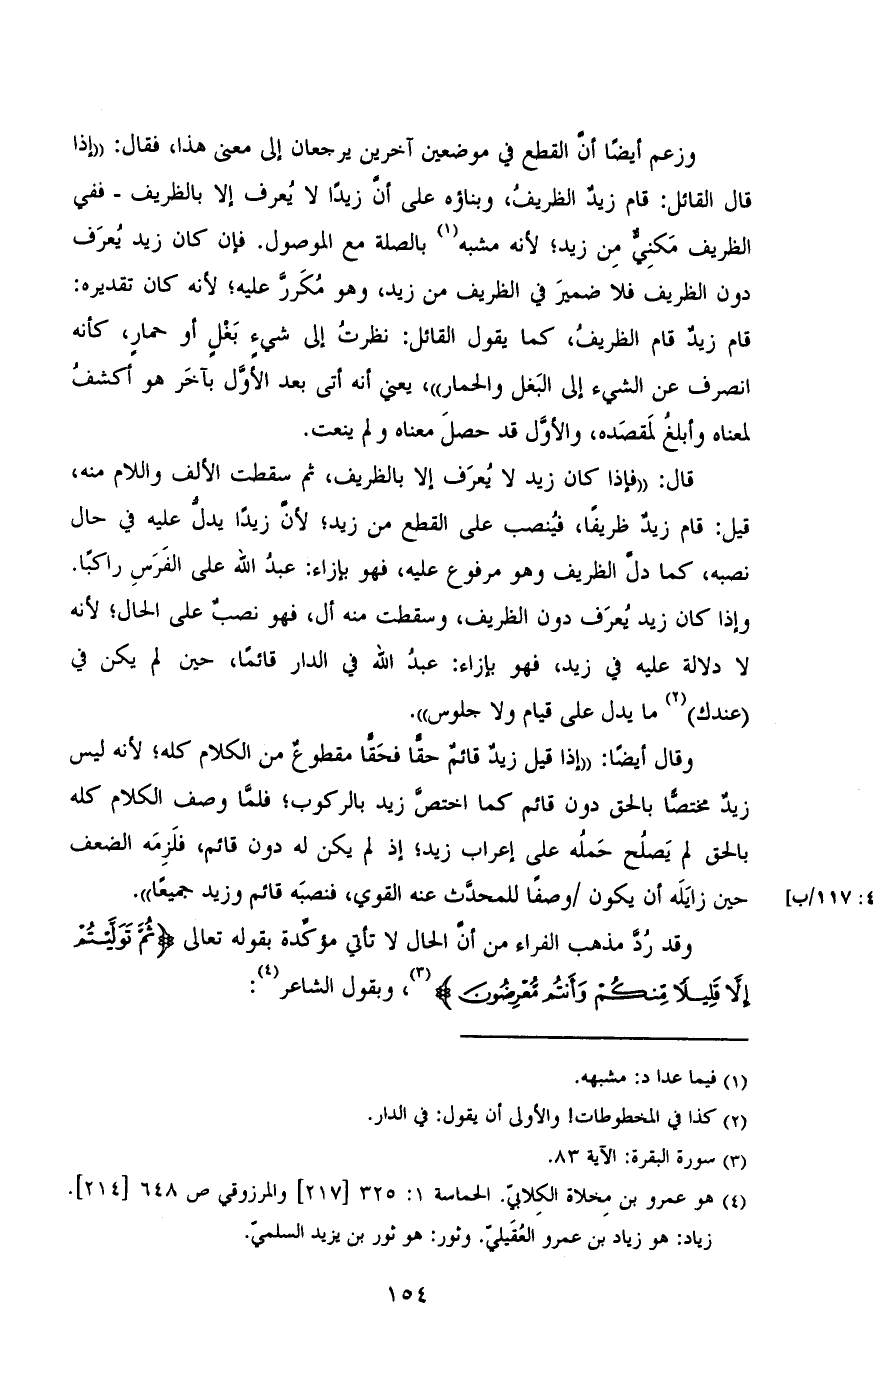 وزعم أيضًا أنَّ القطع في موضعين آخرين يرجعان إلى معنى هذا، فقال: ((إذا
قال القائل: قام زيدٌ الظريفُ، وبناؤه على أنَّ زيدًا لا يُعرف إلا بالظريف - ففي
الظريف مَكنِيٌّ مِن زيد؛ لأنه مشبه(١) بالصلة مع الموصول. فإن كان زيد يُعرَف
دون الظريف فلا ضميرَ في الظريف من زيد، وهو مُكَررَّ عليه؛ لأنه كان تقديره:
قام زيدٌ قام الظريفُ، كما يقول القائل: نظرتُ إلى شيءٍ بَغْلٍ أو حمارٍ، كأنه
انصرف عن الشيء إلى البَغل والحمار))، يعني أنه أتى بعد الأوَّل بآخَر هو أكشفُ
لمعناه وأبلغُ لمَقصَده، والأوَّل قد حصلَ معناه ولم ينعت.
قال: ((فإذا كان زيد لا يُعرَف إلا بالظريف، ثم سقطت الألف واللام منه،
قيل: قام زيدٌ ظريفًا، فيُنصب على القطع من زيد؛ لأنَّ زيدًا يدلُّ عليه في حال
نصبه، كما دلَّ الظريف وهو مرفوع عليه، فهو بإزاء: عبدُ الله على الفَرَسِ راكبًا.
وإذا كان زيد يُعرَف دون الظريف، وسقطت منه أل، فهو نصبٌ على الحال؛ لأنه
لا دلالة عليه في زيد، فهو بإزاء: عبدُ الله في الدار قائمًا، حين لم يكن في
(عندك)(٢) ما يدل على قيام ولا جلوس)).
وقال أيضًا: ((إذا قيل زيدٌ قائمٌ حقًّا فحَقًّا مقطوعٌ من الكلام كله؛ لأنه ليس
زيدٌ مختصًّا بالحق دون قائم كما اختصَّ زيد بالركوب؛ فلمَّا وصف الكلام كله
بالحق لم يَصلُح حَملُه على إعراب زيد؛ إذ لم يكن له دون قائم، فلَزِمَه الضعف
حين زايَلَه أن يكون /وصفًا للمحدَّث عنه القوي، فنصبَه قائم وزيد جميعًا)). ٤: ١١٧/ب]
وقد رُدَّ مذهب الفراء من أنَّ الحال لا تأتي مؤكّدة بقوله تعالى ﴿ثُمَّ تَوَلَّيْتُمْ
إِلَّا قَلِيلًا مِّنكُمْ وَأَنتُم مُّعْرِضُونَ﴾(٣)، وبقول الشاعر(٤):
(١) فيما عدا د: مشبهه.
(٢) كذا في المخطوطات! والأولى أن يقول: في الدار.
(٣) سورة البقرة: الآية ٨٣.
(٤) هو عمرو بن مِخلاة الكِلابيّ. الحماسة ١: ٣٢٥ [٢١٧] والمرزوقي ص ٦٤٨ [٢١٤].
زياد: هو زياد بن عمرو العُقَيليّ. وثور: هو ثور بن يزيد السلميّ.
١٥٤